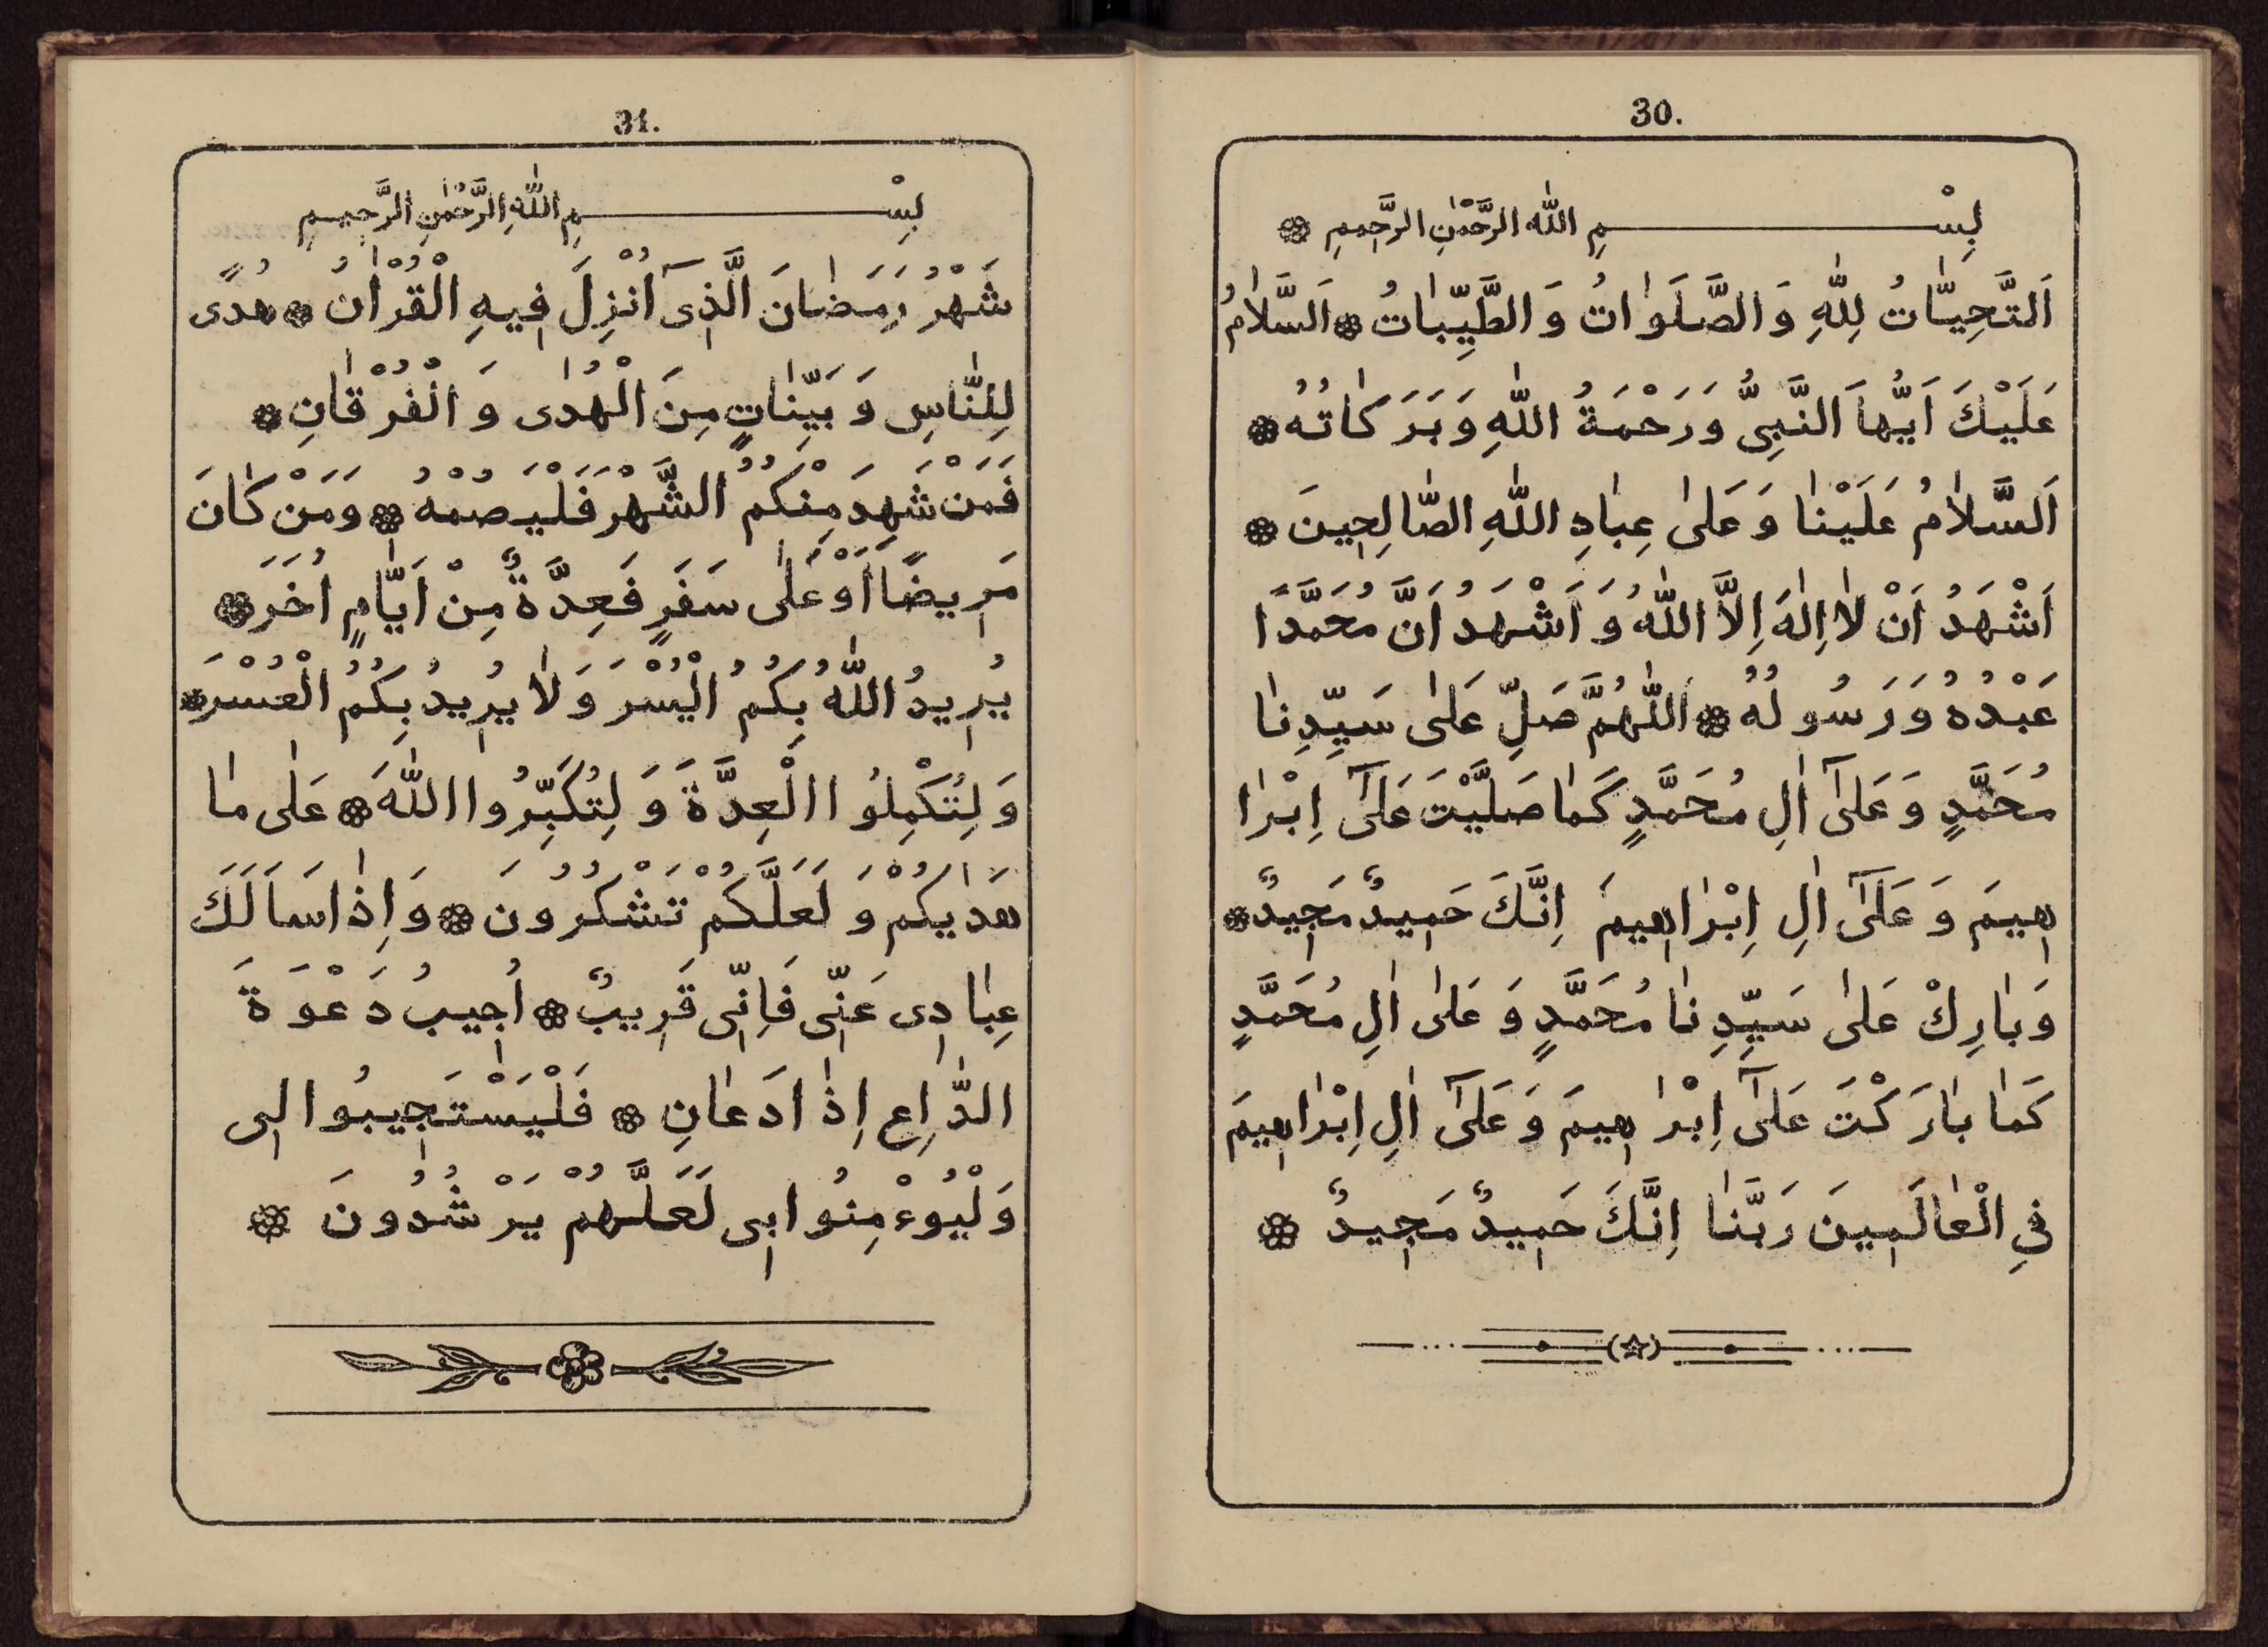 30.
بِسْمِ اللّٰهِ الرَّحْمٰنِ الرَّحِيمِ
اَلتَّحِيّٰاتُ لِلّٰهِ وَالصَّلَوٰاتُ وَالطَّيِّبٰاتُ اَلسَّلٰامُ
عَلَيْكَ اَيُّهَا النَّبِىُّ وَرَحْمَةُ اللّٰهِ وَبَرَكٰاتُهُ
اَلسَّلٰامُ عَلَيْنٰا وَعَلىٰ عِبٰادِ اللّٰهِ الصّٰالِحِينَ
اَشْهَدُ اَنْ لٰا اِلٰهَ اِلَّا اللّٰهُ وَ اَشْهَدُ اَنَّ مُحَمَّدًا
عَبْدُهُ وَرَسُولُهُ اَللّٰهُمَّ صَلِّ عَلىٰ سَيِّدِنٰا
مُحَمَّدٍ وَعَلىٰٓ اٰلِ مُحَمَّدٍ كَمٰا صَلَّيْتَ عَلىٰٓ اِبْرٰا
هِيمَ وَعَلىٰٓ اٰلِ اِبْرٰاهِيمَ اِنَّكَ حَمِيدٌ مَجِيدٌ
وَبٰارِكْ عَلىٰ سَيِّدِنٰا مُحَمَّدٍ وَعَلىٰ اٰلِ مُحَمَّدٍ
كَمٰا بٰارَكْتَ عَلىٰٓ اِبْرٰاهِيمَ وَعَلىٰٓ اٰلِ اِبْرٰاهِيمَ
فِي الْعٰالَمِينَ رَبَّنٰا اِنَّكَ حَمِيدٌ مَجِيدٌ
31.
بِسْمِ اللّٰهِ الرَّحْمٰنِ الرَّحِيمِ
شَهْرُ رَمَضٰانَ الَّذِىٓ اُنْزِلَ فِيهِ الْقُرْاٰنُ هُدًى
لِلنّٰاسِ وَبَيِّنٰاتٍ مِنَ الْهُدٰى وَالْفُرْقٰانِ
فَمَنْ شَهِدَ مِنْكُمُ الشَّهْرَ فَلْيَصُمْهُ وَمَنْ كٰانَ
مَرِيضًا اَوْ عَلٰى سَفَرٍ فَعِدَّةٌ مِنْ اَيّٰامٍ اُخَرَ
يُرِيدُ اللّٰهُ بِكُمُ الْيُسْرَ وَلٰا يُرِيدُ بِكُمُ الْعُسْرَ
وَلِتُكْمِلُوا الْعِدَّةَ وَلِتُكَبِّرُوا اللّٰهَ عَلٰى مٰا
هَدٰيكُمْ وَ لَعَلَّكُمْ تَشْكُرُونَ وَاِذٰا سَاَلَكَ
عِبٰادِى عَنِّى فَاِنِّى قَرِيبٌ اُجِيبُ دَعْوَةَ
الدّٰاعِ اِذٰا دَعٰانِ فَلْيَسْتَجِيبُوا لِى
وَلْيُوءْمِنُوا بِى لَعَلَّهُمْ يَرْشُدُونَ